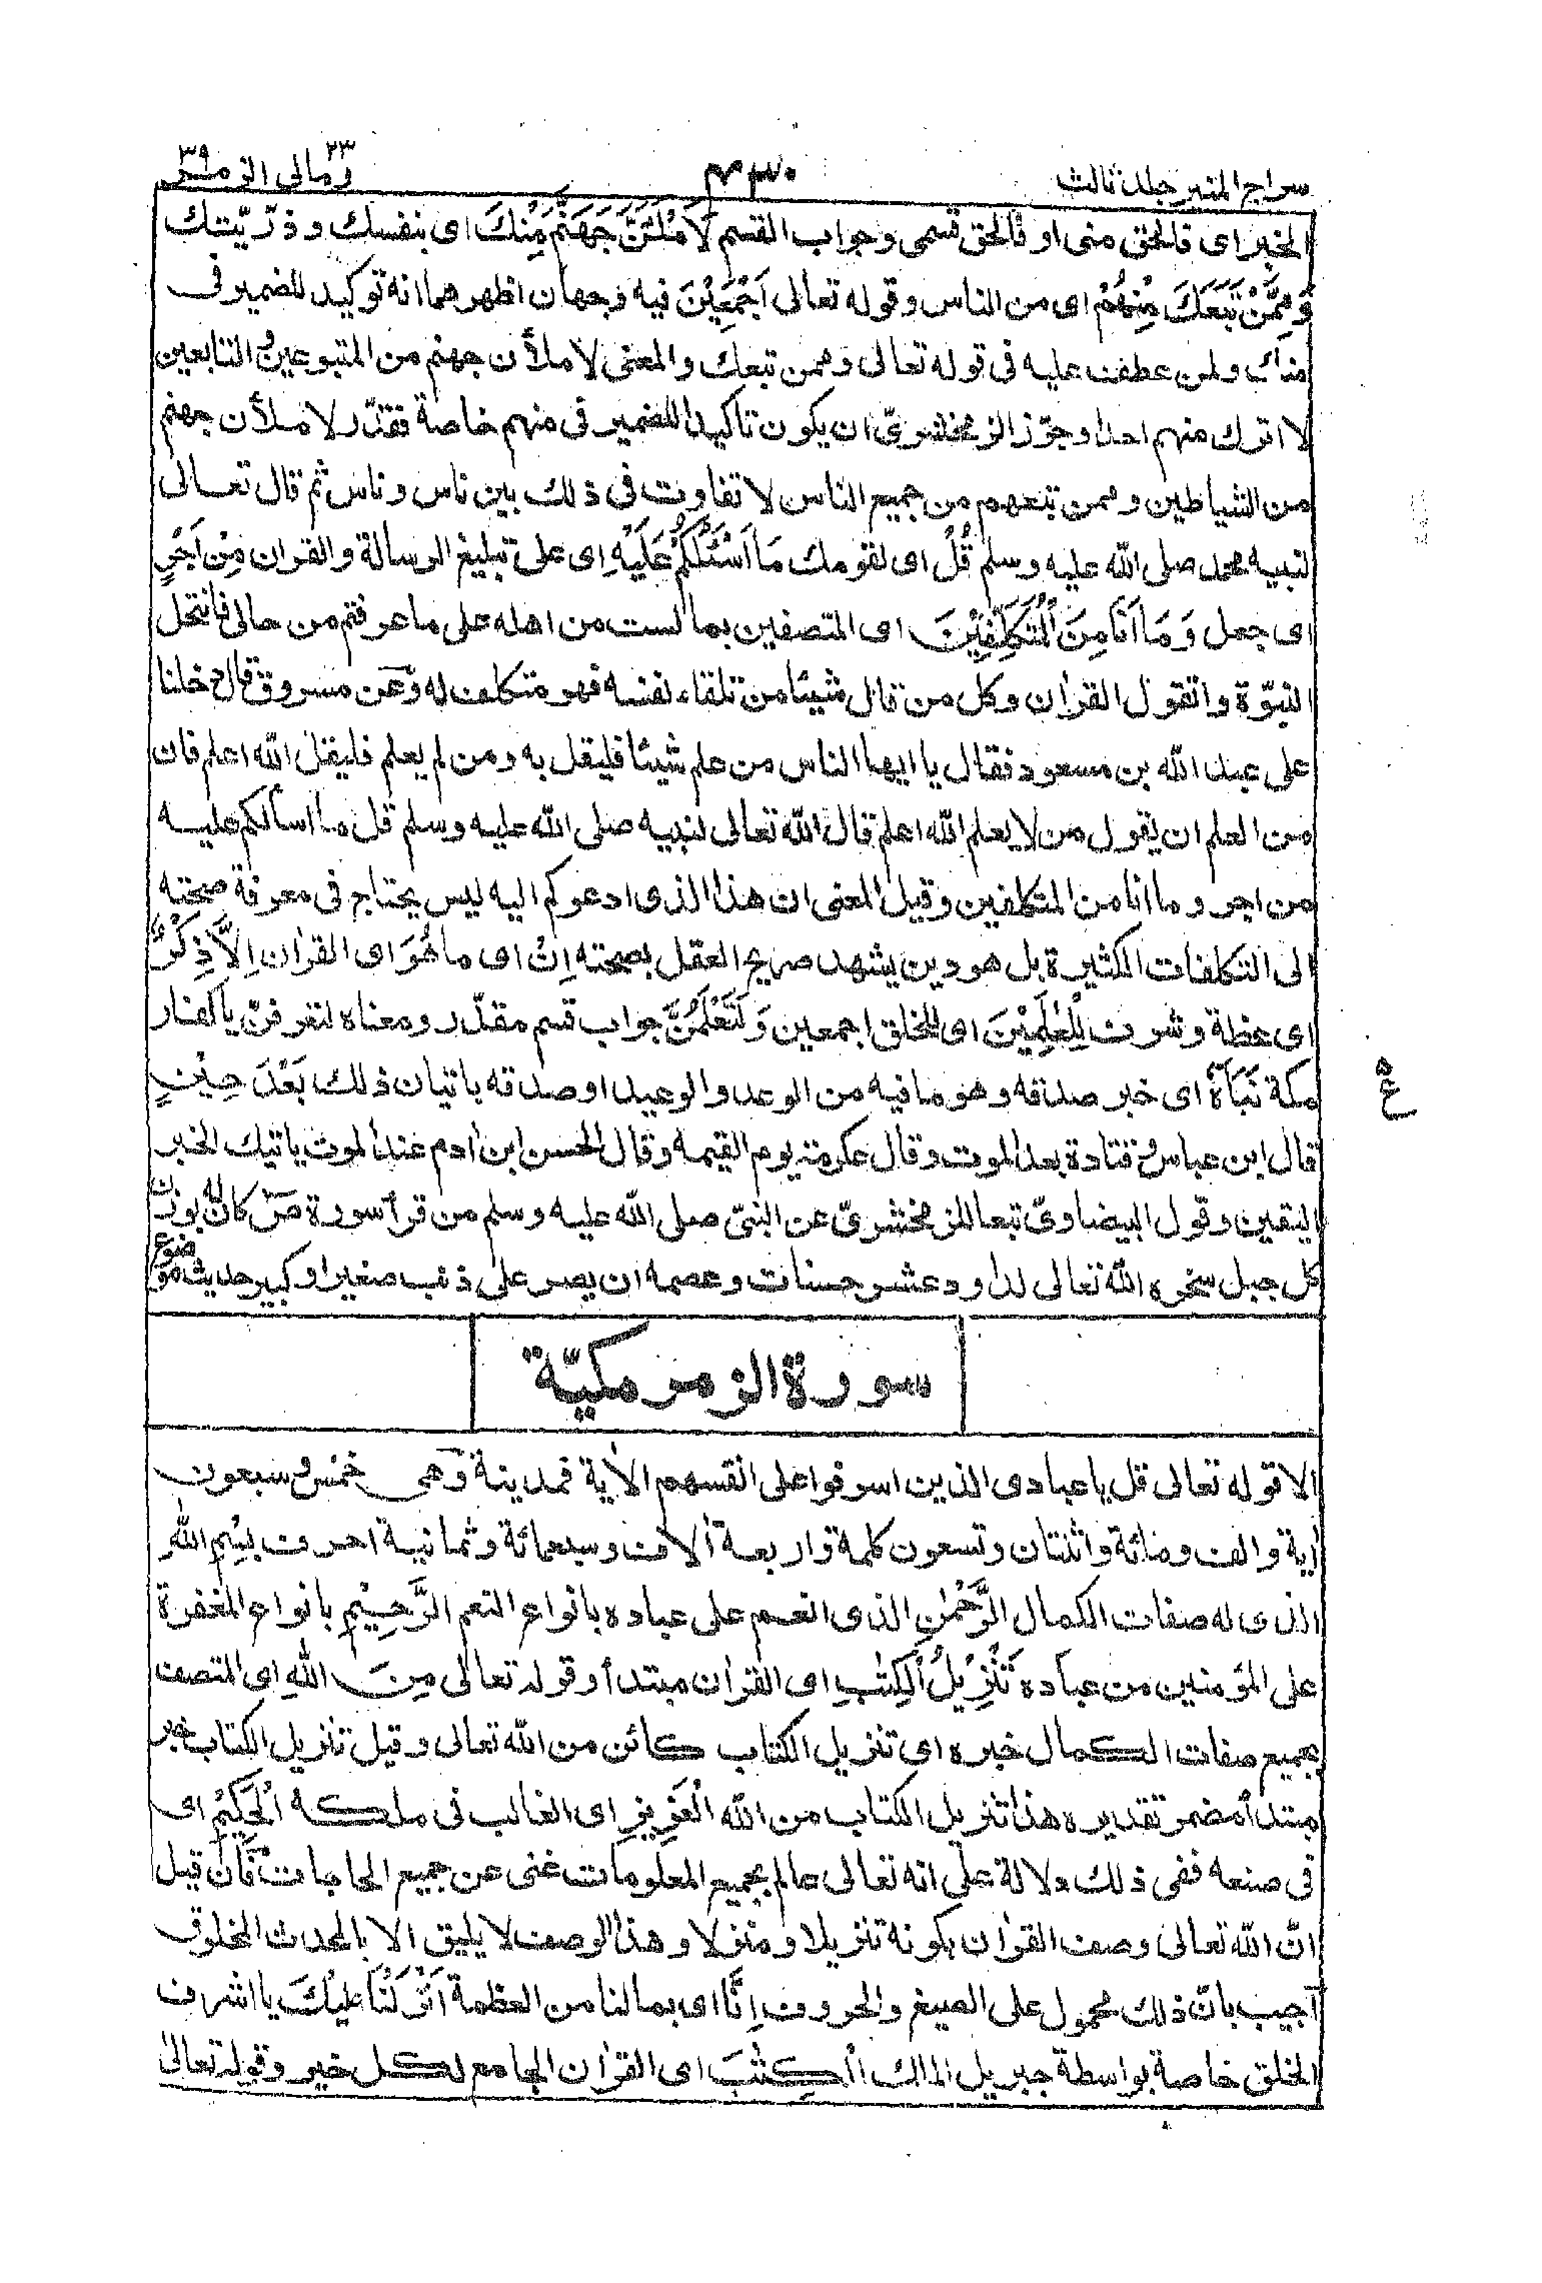 سراج المنير جلد ثالث
٤٣٠
ومالى ٢٣ الزمر ٣٩
الخبر اى فالحق منى او فالحق قسمى وجواب القسم لَاَمْلَئَنَّ جَهَنَّمَ مِنْكَ اى بنفسك و ذرّيّتك
وَمِمَّنْ تَبِعَكَ مِنْهُمْ اى من الناس وقوله تعالى اَجْمَعِيْنَ فيه وجهان اظهرهما انه توكيد للضمير فى
منك ولمن عطف عليه فى قوله تعالى وممن تبعك والمعنى لاملأن جهنم من المتبوعين و التابعين
لا اترك منهم احدا وجوّز الزمخشرىّ ان يكون تاكيدا للضمير فى منهم خاصة فقدّر لاملأن جهنم
من الشياطين وممن تبعهم من جميع الناس لا تفاوت فى ذلك بين ناس وناس ثم قال تعالى
لنبيه محمد صلى الله عليه وسلم قُلْ اى لقومك مَا اَسْئَلُكُمْ عَلَيْهِ اى على تبليغ الرسالة والقران مِنْ اَجْرٍ
اى جعل وَمَا اَنَا مِنَ الْمُتَكَلِّفِيْنَ اى المتصفين بما لست من اهله على ما عرفتم من حالى فانتحل
النبوّة واتقول القران وكل من قال شيئا من تلقاء نفسه فهو متكلف له وعن مسروق قال دخلنا
على عبد الله بن مسعود فقال يا ايها الناس من علم شيئا فليقل به ومن لم يعلم فليقل الله اعلم فان
من العلم ان يقول من لا يعلم الله اعلم قال الله تعالى لنبيه صلى الله عليه وسلم قل ما أسألكم عليه
من اجر وما انا من المتكلفين وقيل المعنى ان هذا الذى ادعوكم اليه ليس يحتاج فى معرفة صحته
الى التكلفات الكثيرة بل هو دين يشهد صريح العقل بصحته اِنْ اى ما هُوَ اى القران اِلَّا ذِكْرٌ
اى عظة وشرف لِّلْعٰلَمِيْنَ اى للخلق اجمعين وَلَتَعْلَمُنَّ جواب قسم مقدّر ومعناه لتعرفنّ يا كفار
مكة نَبَاَهٗ اى خبر صدقه وهو ما فيه من الوعد والوعيد او صدقه باتيان ذلك بَعْدَ حِيْنٍ
قال ابن عباس وقتادة بعد الموت وقال عكرمة يوم القيمة وقال الحسن ابن ادم عند الموت ياتيك الخبر
اليقين وقول البيضاوىّ تبعا للزمخشرىّ عن النبىّ صلى الله عليه وسلم من قرأ سورة صٓ كان له بوزن
كل جبل سخره الله تعالى لداود عشر حسنات وعصمه ان يصر على ذنب صغير او كبير حديث موضوع
ع ٥
سورة الزمر مكيّة
الا قوله تعالى قل يا عبادى الذين اسرفوا على انفسهم الاٰية فمدينة وهى خمس وسبعون
اٰية والف ومائة واثنتان وتسعون كلمة واربعة اٰلاف وسبعمائة وثمانية احرف بِسْمِ اللهِ
الذى له صفات الكمال الرَّحْمٰنِ الذى انعم على عباده بانواع النعم الرَّحِيْمِ بانواع المغفرة
على المؤمنين من عباده تَنْزِيْلُ الْكِتٰبِ اى القران مبتدأ وقوله تعالى مِنَ اللهِ اى المتصف
بجميع صفات الكمال خبره اى تنزيل الكتاب كائن من الله تعالى وقيل تنزيل الكتاب خبر
مبتدأ مضمر تقديره هذا تنزيل الكتاب من الله الْعَزِيْزِ اى الغالب فى ملكه الْحَكِيْمِ اى
فى صنعه ففى ذلك دلالة على انه تعالى عالم بجميع المعلومات غنى عن جميع الحاجات فان قيل
انّ الله تعالى وصف القران بكونه تنزيلا ومنزلا وهذا الوصف لا يليق الا بالمحدث المخلوق
اجيب بانّ ذلك محمول على الصيغ والحروف اِنَّا اى بما لنا من العظمة اَنْزَلْنَا اِلَيْكَ يا اشرف
الخلق خاصة بواسطة جبريل الملك الْكِتٰبَ اى القران الجامع لكل خير وقوله تعالى